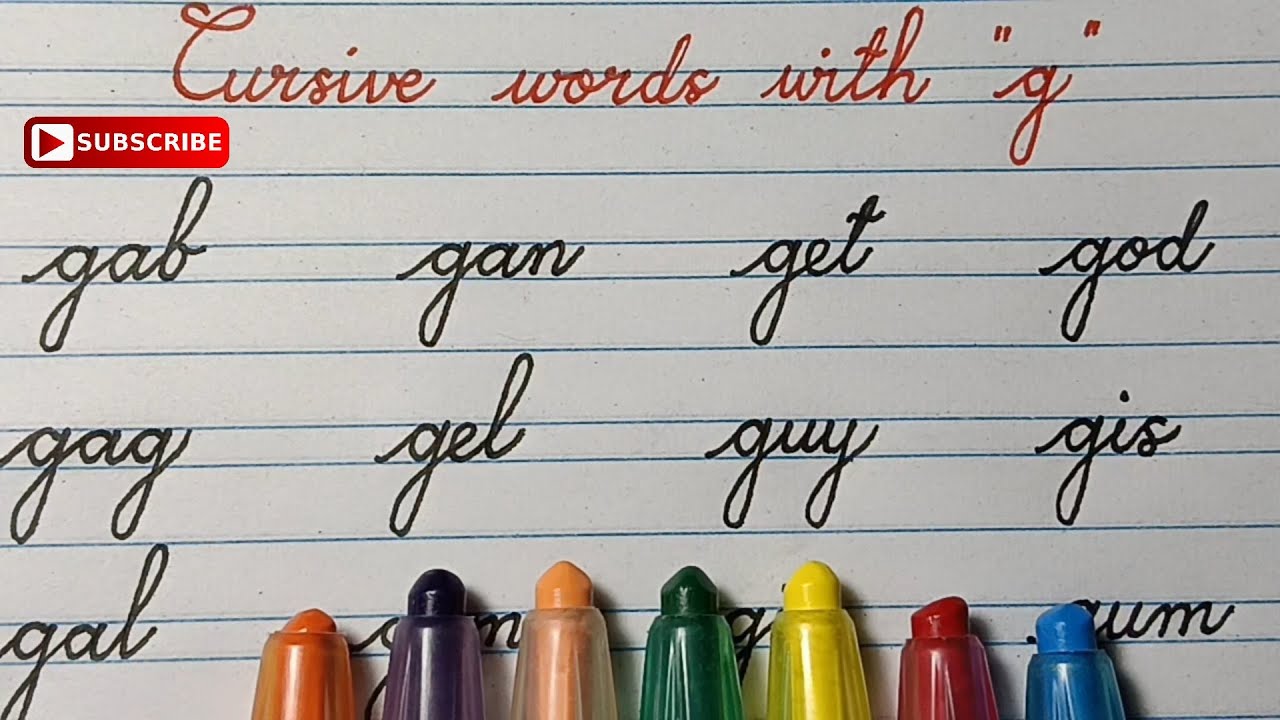 Cursive words with "g"
SUBSCRIBE
gab gan get god
gag gel guy gis
gal gum